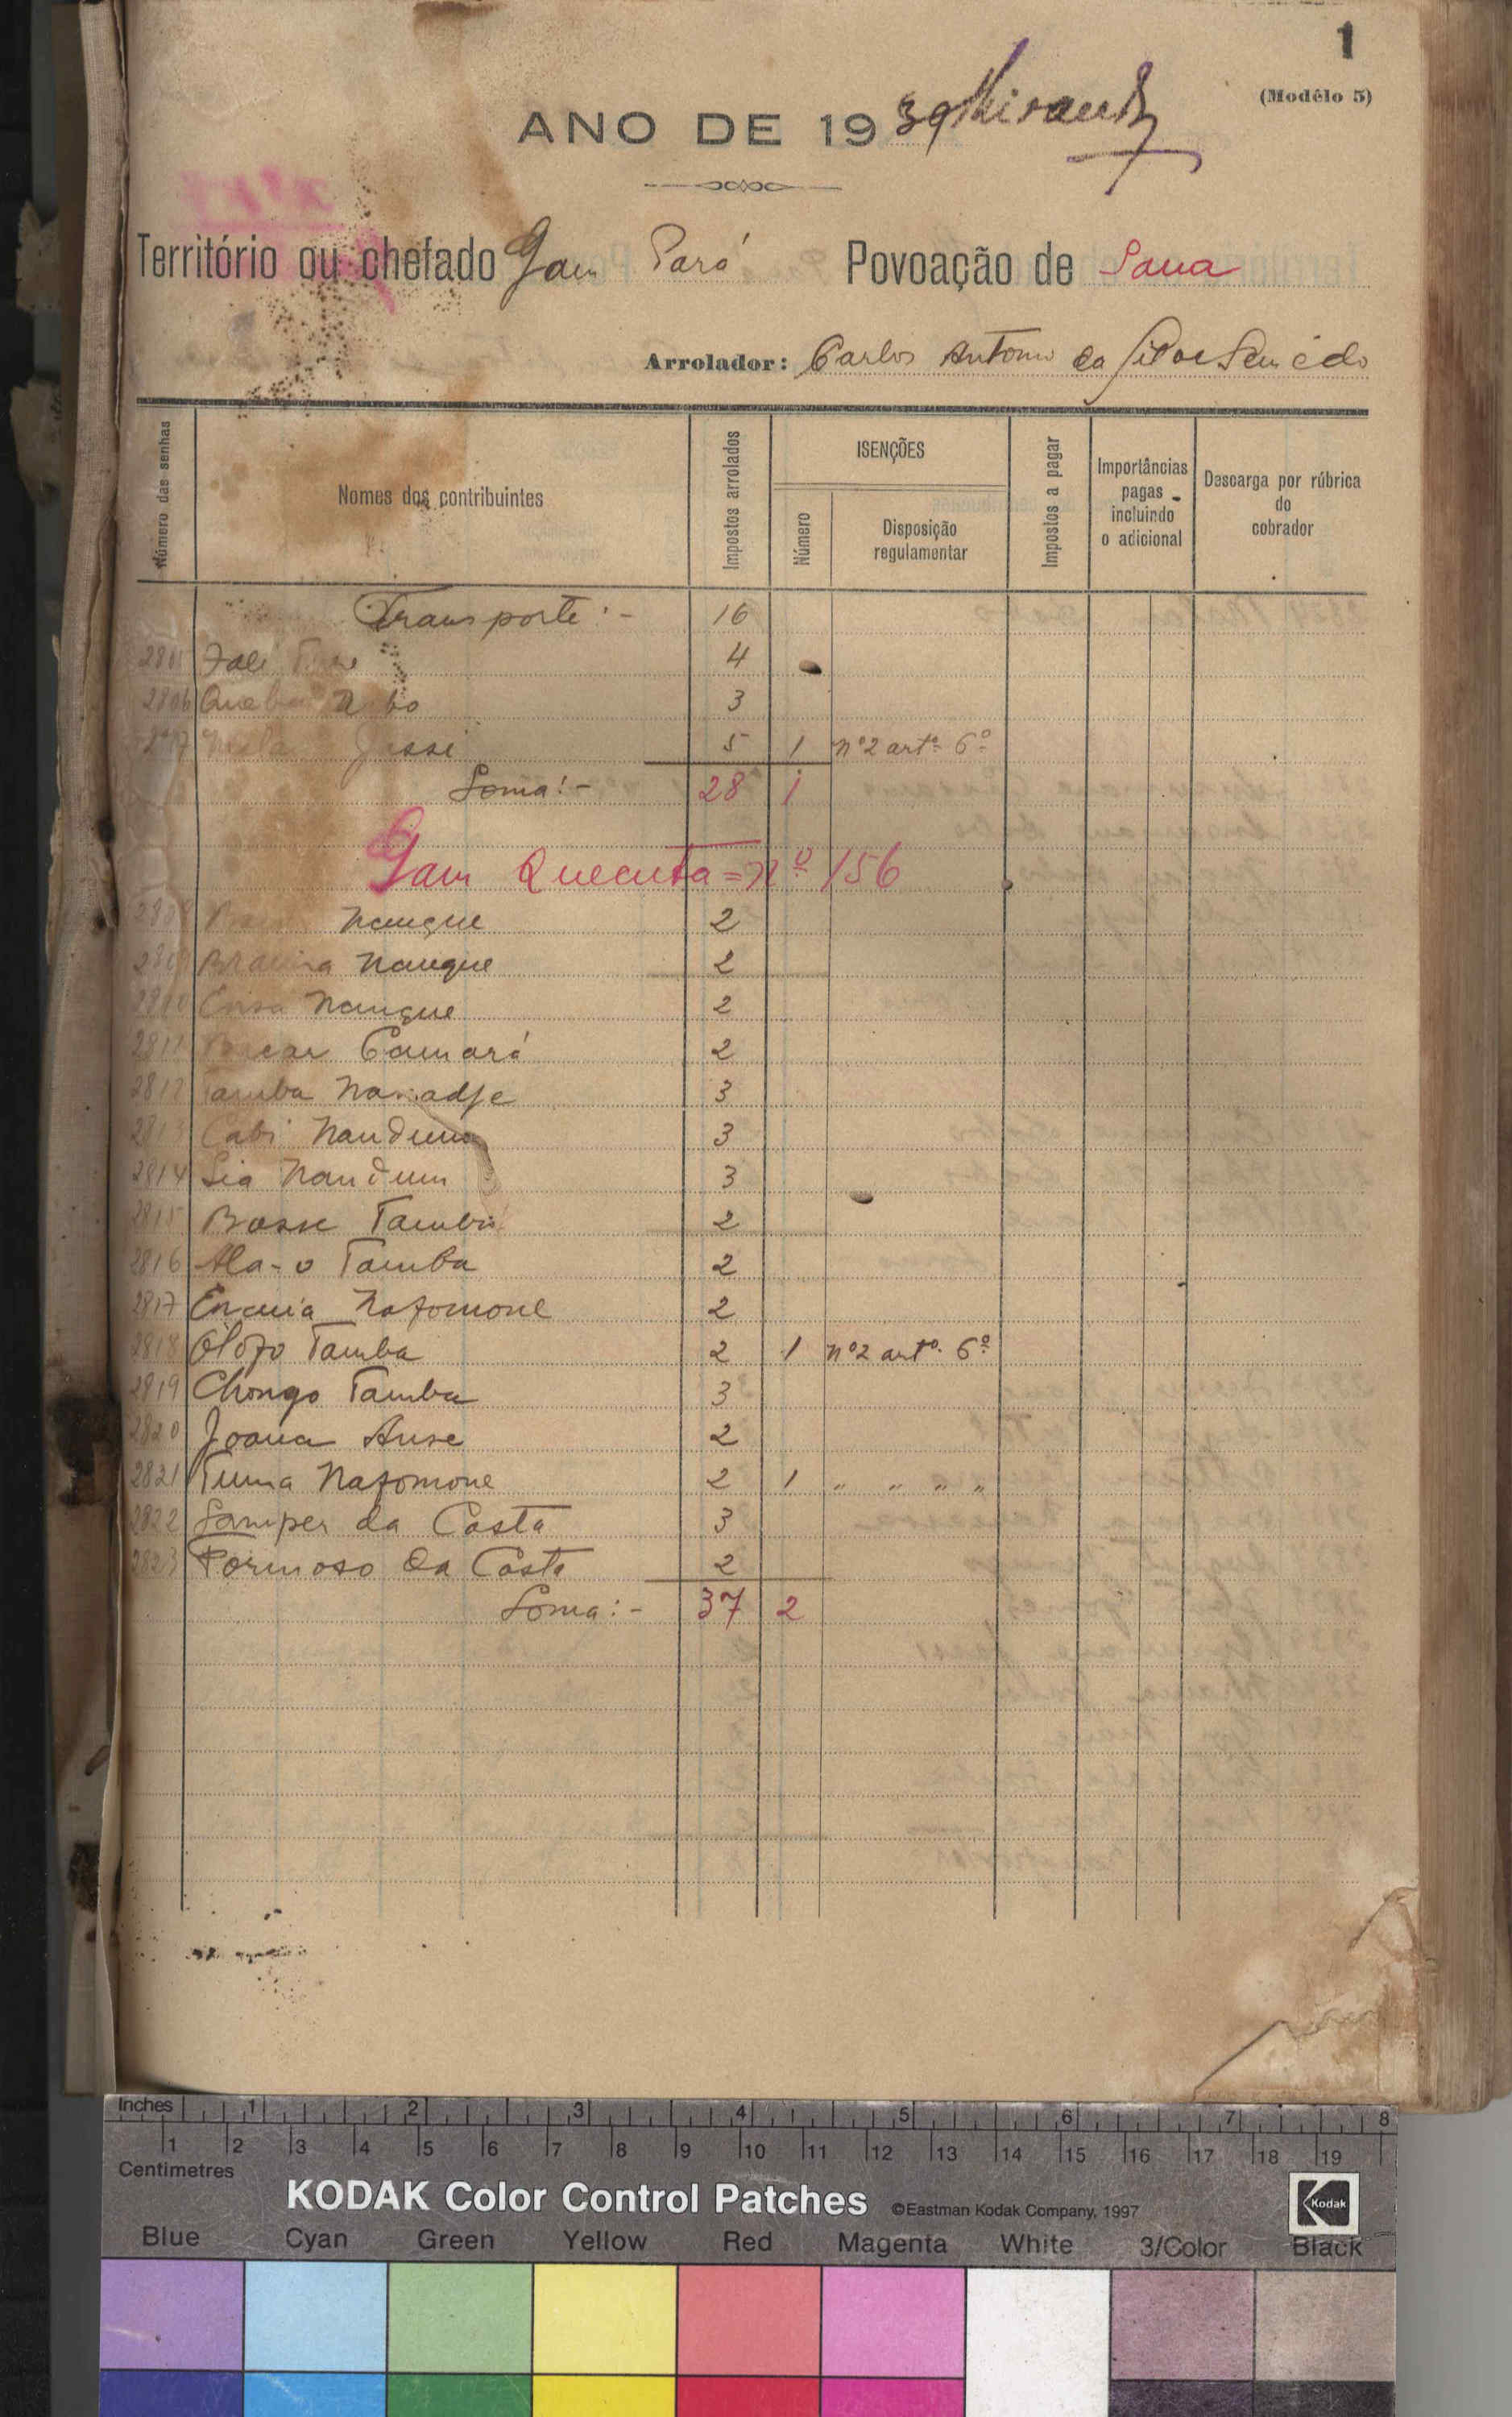 1
(Modêlo 5)
ANO DE 1939
Território ou chefado Gam Pará Povoação de Saua
Arrolador: Carlos Antonio da Silva Semedo
Número das senhas
Nomes dos contribuintes
Impostos arrolados
ISENÇÕES
Número
Disposição regulamentar
Impostos a pagar
Importâncias pagas incluindo o adicional
Descarga por rúbrica do cobrador
Transporte:- 16
4
2806 3
5 1 nº2 artº 6º
Soma:- 28 1
Gam Quecuta = nº 156
Nanque 2
Nanque 2
Nanque 2
2811 Camará 2
2812 Tamba 3
2813 Cabi Nandum 3
2814 Sia Nandum 3
2815 Basse Tamba 2
2816 Ala-o Tamba 2
2817 Nafomone 2
2818 Olofo Tamba 2 1 nº2 artº 6º
2819 Chongo Tamba 3
2820 Joana Anse 2
2821 Tuma Nafomone 2 1 " " " "
2822 Samper da Costa 3
2823 Formoso da Costa 2
Soma:- 37 2
Inches 1 2 3 4 5 6 7 8
1 2 3 4 5 6 7 8 9 10 11 12 13 14 15 16 17 18 19
Centimetres
KODAK Color Control Patches ©Eastman Kodak Company, 1997 Kodak
Blue Cyan Green Yellow Red Magenta White 3/Color Black